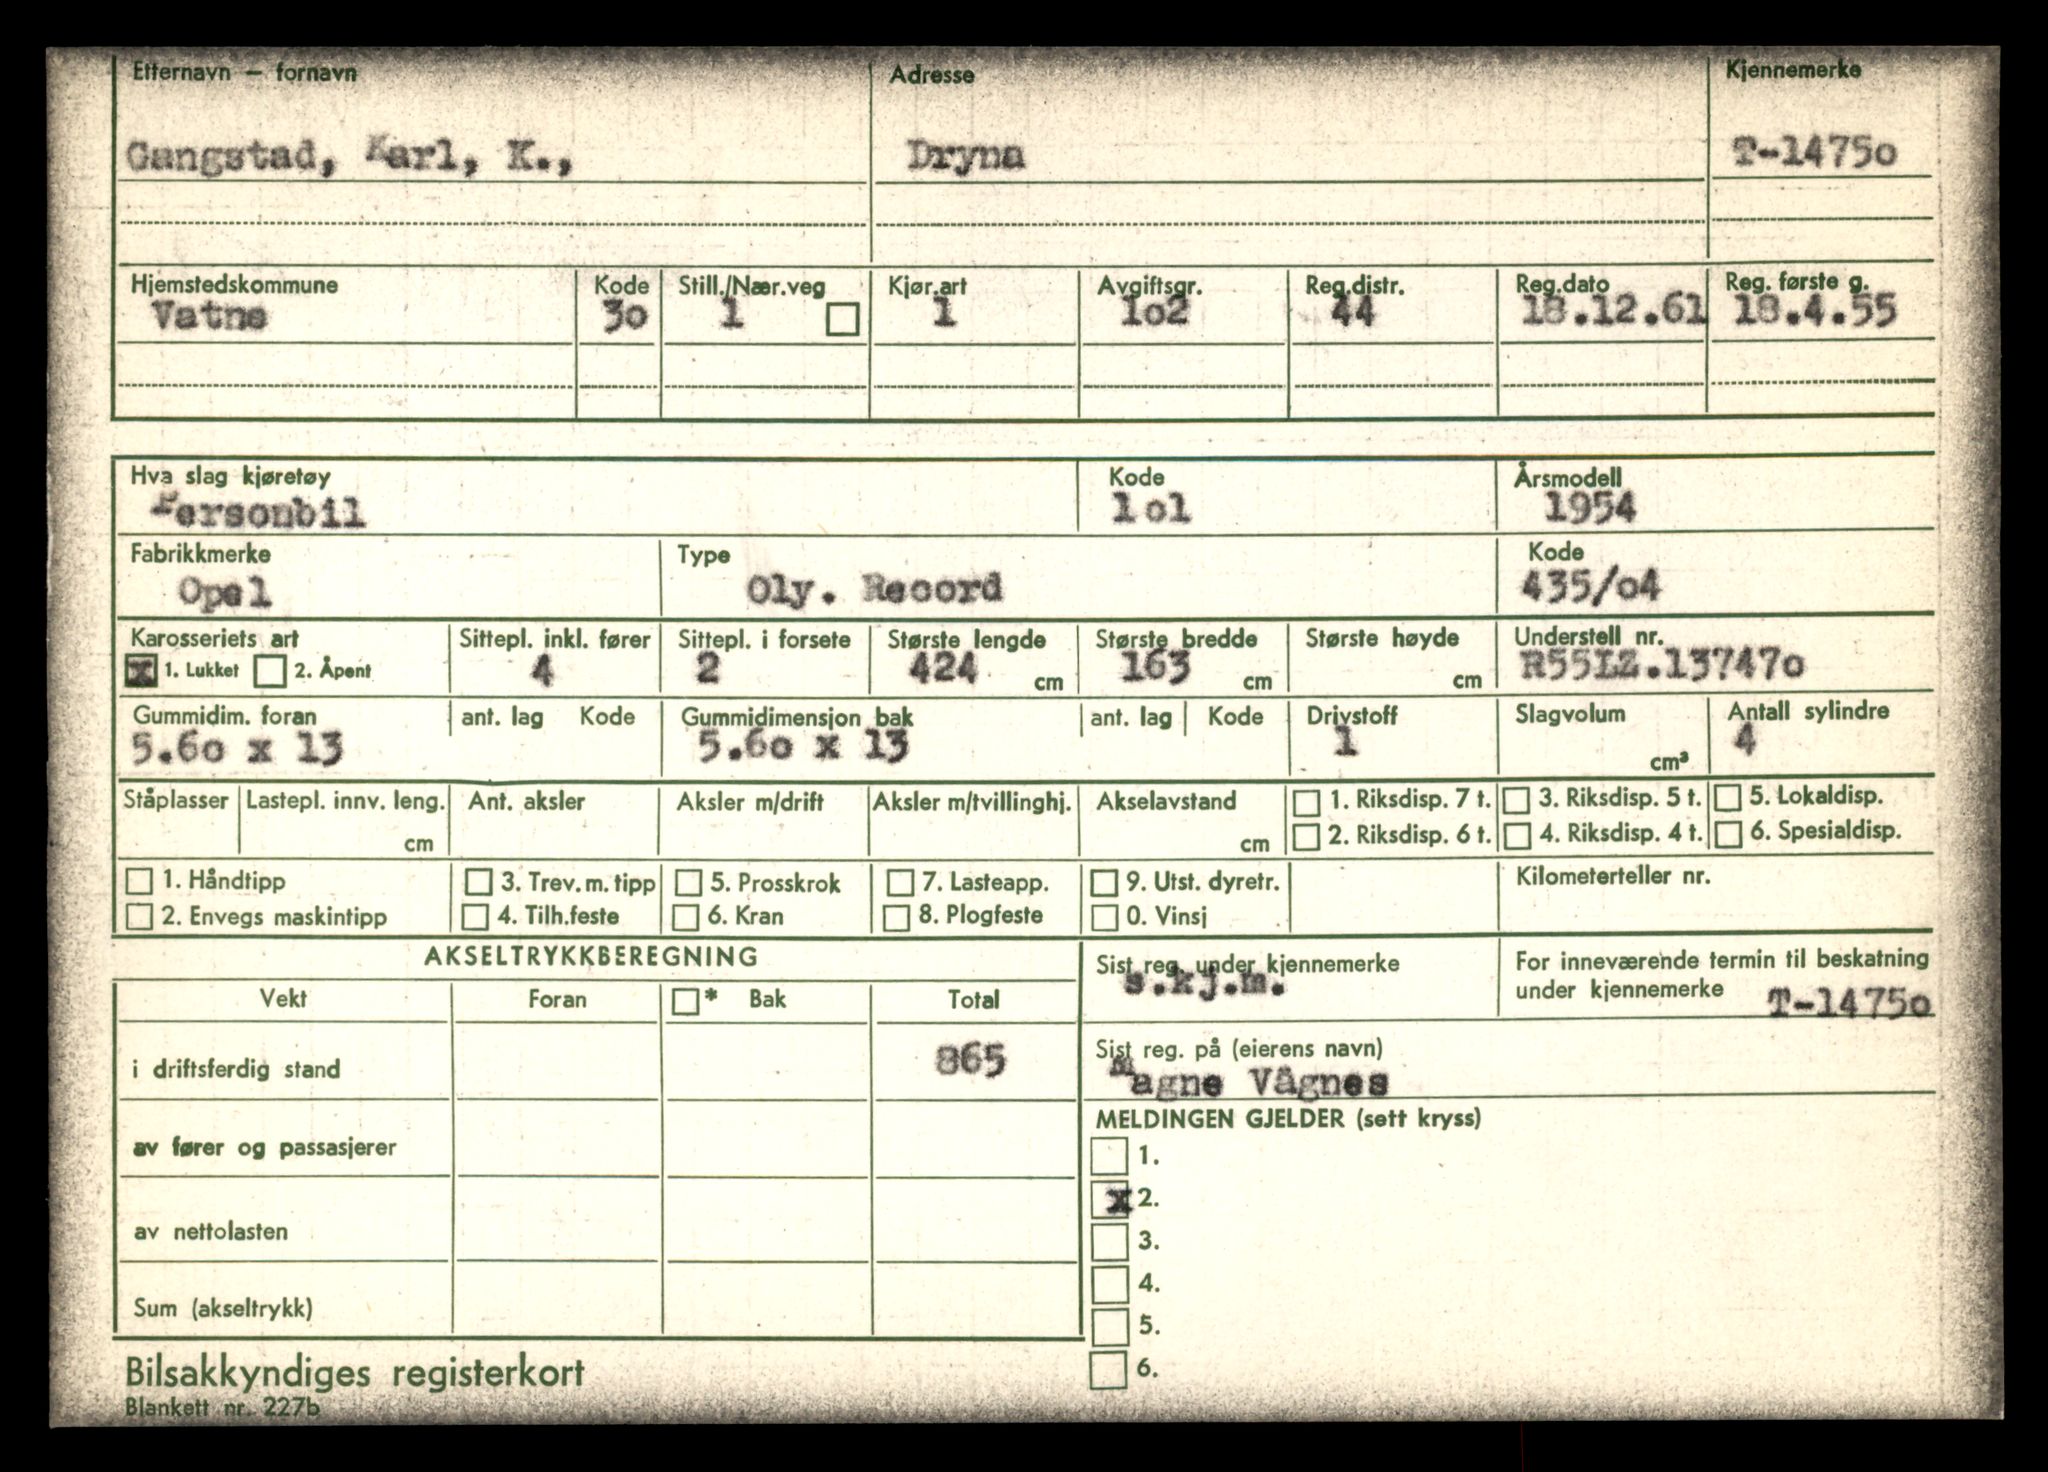 Etternavn — fornavn Adresse Kjennemerke
Gangstad, Karl, K., Dryna T-1475o
Hjemstedskommune Kode Still./Nær.veg Kjør.art Avgiftsgr. Reg.distr. Reg.dato Reg. første g.
Vatne 3o 1 1 1o2 44 18.12.61 18.4.55
Hva slag kjøretøy Kode Årsmodell
Personbil lol 1954
Fabrikkmerke Type Kode
Opel Oly. Record 435/o4
Karosseriets art Sittepl. inkl. fører Sittepl. i forsete Største lengde Største bredde Største høyde Understell nr.
x 1. Lukket 2. Åpent 4 2 424 cm 163 cm cm R55LZ.13747o
Gummidim. foran ant. lag Kode Gummidimensjon bak ant. lag Kode Drivstoff Slagvolum Antall sylindre
5.6o x 13 5.6o x 13 1 cm³ 4
Ståplasser Lastepl. innv. leng. Ant. aksler Aksler m/drift Aksler m/tvillinghj. Akselavstand 1. Riksdisp. 7 t. 3. Riksdisp. 5 t. 5. Lokaldisp.
cm cm 2. Riksdisp. 6 t. 4. Riksdisp. 4 t. 6. Spesialdisp.
1. Håndtipp 3. Trev. m. tipp 5. Prosskrok 7. Lasteapp. 9. Utst. dyretr. Kilometerteller nr.
2. Envegs maskintipp 4. Tilh.feste 6. Kran 8. Plogfeste 0. Vinsj
AKSELTRYKKBEREGNING Sist reg. under kjennemerke For inneværende termin til beskatning
s.kj.m. under kjennemerke T-1475o
Vekt Foran * Bak Total
i driftsferdig stand 865
Sist reg. på (eierens navn)
Magne Vågnes
MELDINGEN GJELDER (sett kryss)
av fører og passasjerer 1.
x 2.
av nettolasten 3.
4.
Sum (akseltrykk) 5.
6.
Bilsakkyndiges registerkort
Blankett nr. 227b